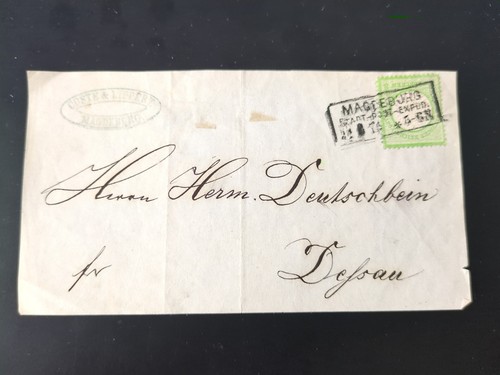 MAGDEBURG
STADT-POST-EXPED.
MAGDEBURG.
Herrn Herm. Deutschbein
fr Dessau